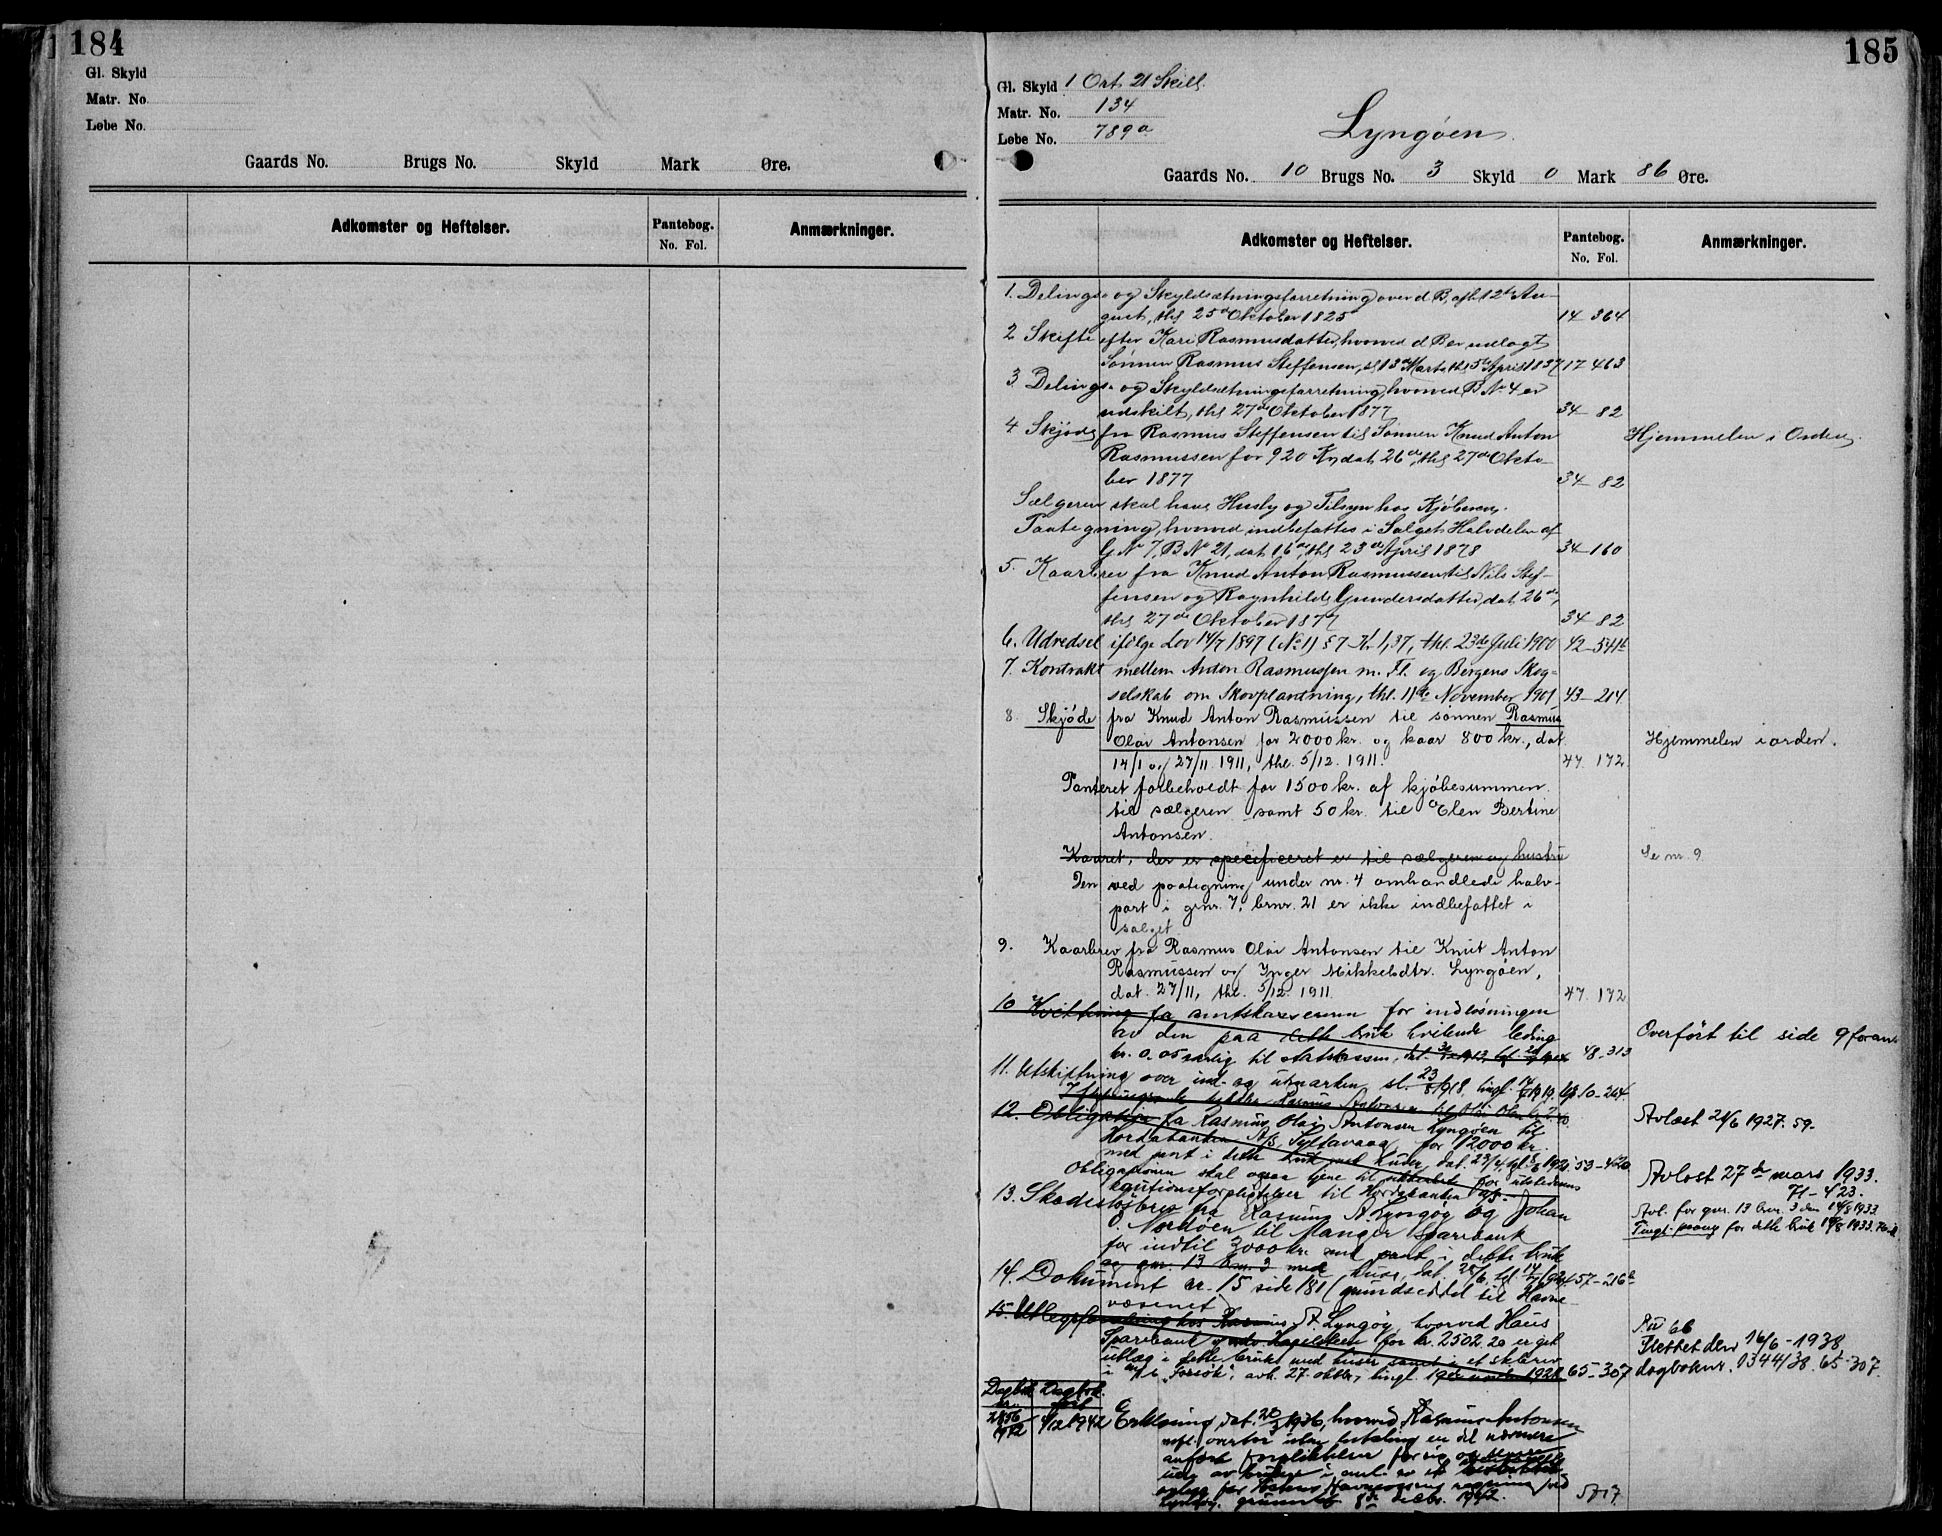 184
Gl. Skyld
Matr. No.
Løbe No.
Gaards No. Brugs No. Skyld Mark Øre.
Adkomster og Heftelser.
Pantebog.
No. Fol.
Anmærkninger.
185
Gl. Skyld 1 Ort 21 Skill.
Matr. No. 134
Løbe No. 789a
Lyngøen
Gaards No. 10 Brugs No. 3 Skyld 0 Mark 86 Øre.
Adkomster og Heftelser.
Pantebog.
No. Fol.
Anmærkninger.
1. Delings- og Skyldsætningsforretning over d B, afh 12te Au-
gust, thl 25de Oktober 1825 14 364
2 Skifte efter Kari Rasmusdatter, hvorved d B er udlagt
Sønnen Rasmus Steffensen, sl 13de Marts, thl 5te April 1837 17 463
3. Delings- og Skyldsætningsforretning, hvorved B No 4 er
udskilt, thl 27de Oktober 1877 34- 82
4 Skjøde fra Rasmus Steffensen til Sønnen Knud Anton Hjemmelen i Orden.
Rasmussen for 920 Kr, dat. 26de, thl 27de Okto-
ber 1877 34- 82
Sælgeren skal have Husly og Tilsyn hos Kjøberen.
Paategning, hvorved indbefattes i Salget Halvdelen af
G No 7, B No 21, dat 16de, thl 23de April 1878 34-160
5. Kaarbrev fra Knud Anton Rasmussen til Nils Stef-
fensen og Ragnhild Gundersdatter, dat. 26de,
thl 27de Oktober 1877 34-82
6. Udredsel ifølge Lov 14/7 1897 (No 1) § 7 Kr 1,37, thl. 23de Juli 1900 42-541b
7. Kontrakt mellem Anton Rasmussen m. Fl. og Bergens Skog-
selskab om Skovplantning, thl. 11te November 1901 43-214
8. Skjøde fra Knud Anton Rasmussen til sønnen Rasmus
Olai Antonsen for 2000 kr. og kaar 800 kr., dat. Hjemmelen i orden.
14/1 og 27/11 1911, thl. 5/12. 1911. 47. 172
Panteret forbeholdt for 1500 kr. af kjøbesummen
til sælgeren samt 50 kr. til Elen Bertine
Antonsen.
Kaaret, der er specificeret er til sælgeren og hustru Se nr. 9
Den ved paategning under nr. 4 omhandlede halv-
part i gnr. 7, brnr. 21 er ikke indbefattet i
salget.
9. Kaarbrev fra Rasmus Olai Antonsen til Knut Anton
Rasmussen og Inger Mikkelsdtr. Lyngøen,
dat. 27/11, thl. 5/12. 1911. 47. 172
10 Kvittering fra amtskassereren for indløsningen
av den paa dette bruk hvilende leding Overført til side 9 foran.
kr. 0.05 aarlig til statskassen, 48-313
11. Utskiftning over ind- og utmarken, sl. 23/8 1918, tingl. 10-264.
12. Obligation fra Rasmus Olai Antonsen Lyngøen til Avlæst 21/6 1927. 59.
Hordabanken A/S, Syltavaag for 12000 kr.
med pant i dette bruk med huser, dat. 23/4, 1921 53-420
Obligationen skal ogsaa tjene til sikkerhet for utstederens Avløst 27de mars 1933.
kautionsforpligtelser til Hordabanken A/S. 71-423.
13. Skadesløsbrev fra Rasmus A. Lyngøy og Johan Avl. for gnr. 13 bnr. 3 den 14/8 1933
O. Nordøen til Manger Sparebank
for indtil 3000 kr. med pant i dette bruk
og gnr. 13 bnr. 3 med huse, dat. 28/6, tgl. 57-216b
14. Dokument nr. 15 side 181 (grundseddel til Havne-
væsenet)
15. Utlegsforretning hos Rasmus A. Lyngøy, hvorved Haus
Sparebank for kr. 2502.20 er git Slettet den 16/6-1938
utlæg i dette bruk med huser samt i et skibsrev dagboknr. 1344/38. 65-307.
i m/k "Forsøk", avh. 27. oktbr, tingl. 1928 65-307
Dagbok nr. Dagbok ført
2856/1942 8/12 1942 Erklæring, dat. 1936, hvorved Rasmus Antonsen
m.fl. overtar uten betaling en del nærmere
anførte forpliktelser for sig og
Lyngøy. grunnet 8de desbr. 1942. A 17.